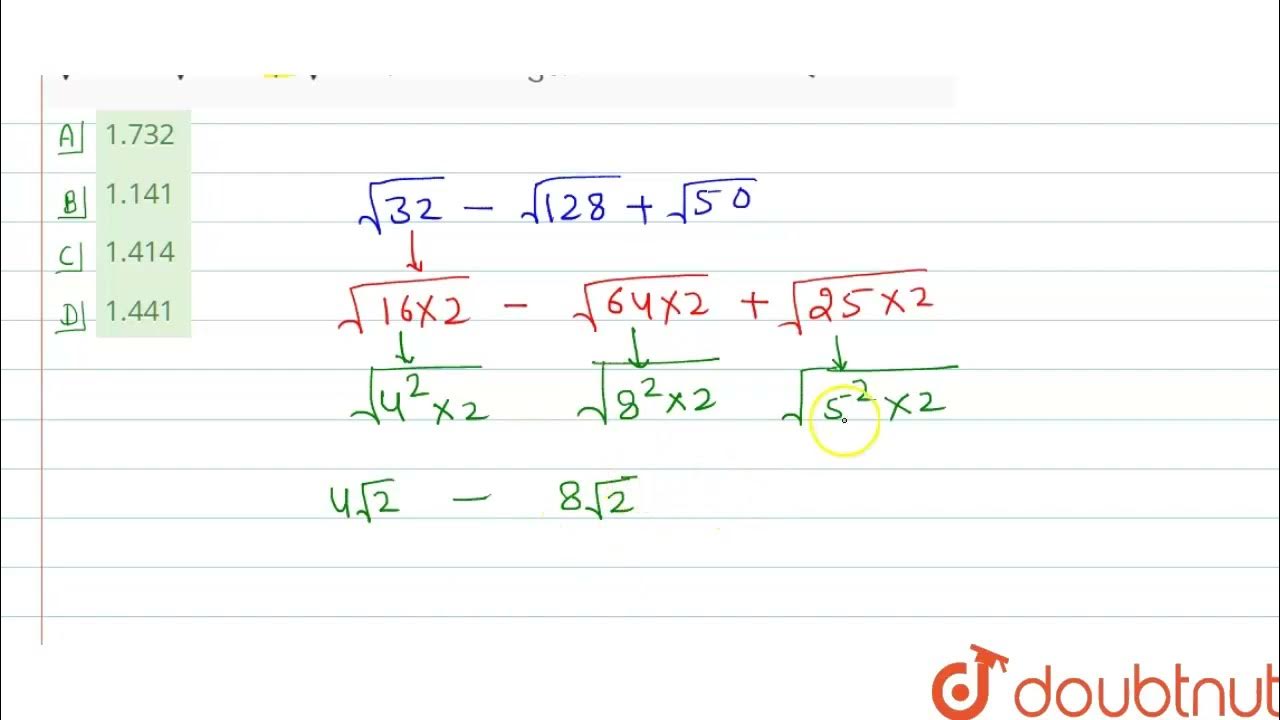 A] 1.732
B] 1.141
C] 1.414
D] 1.441
√32 − √128 + √50
√16×2 − √64×2 + √25×2
√4²×2 √8²×2 √5²×2
4√2 − 8√2
doubtnut